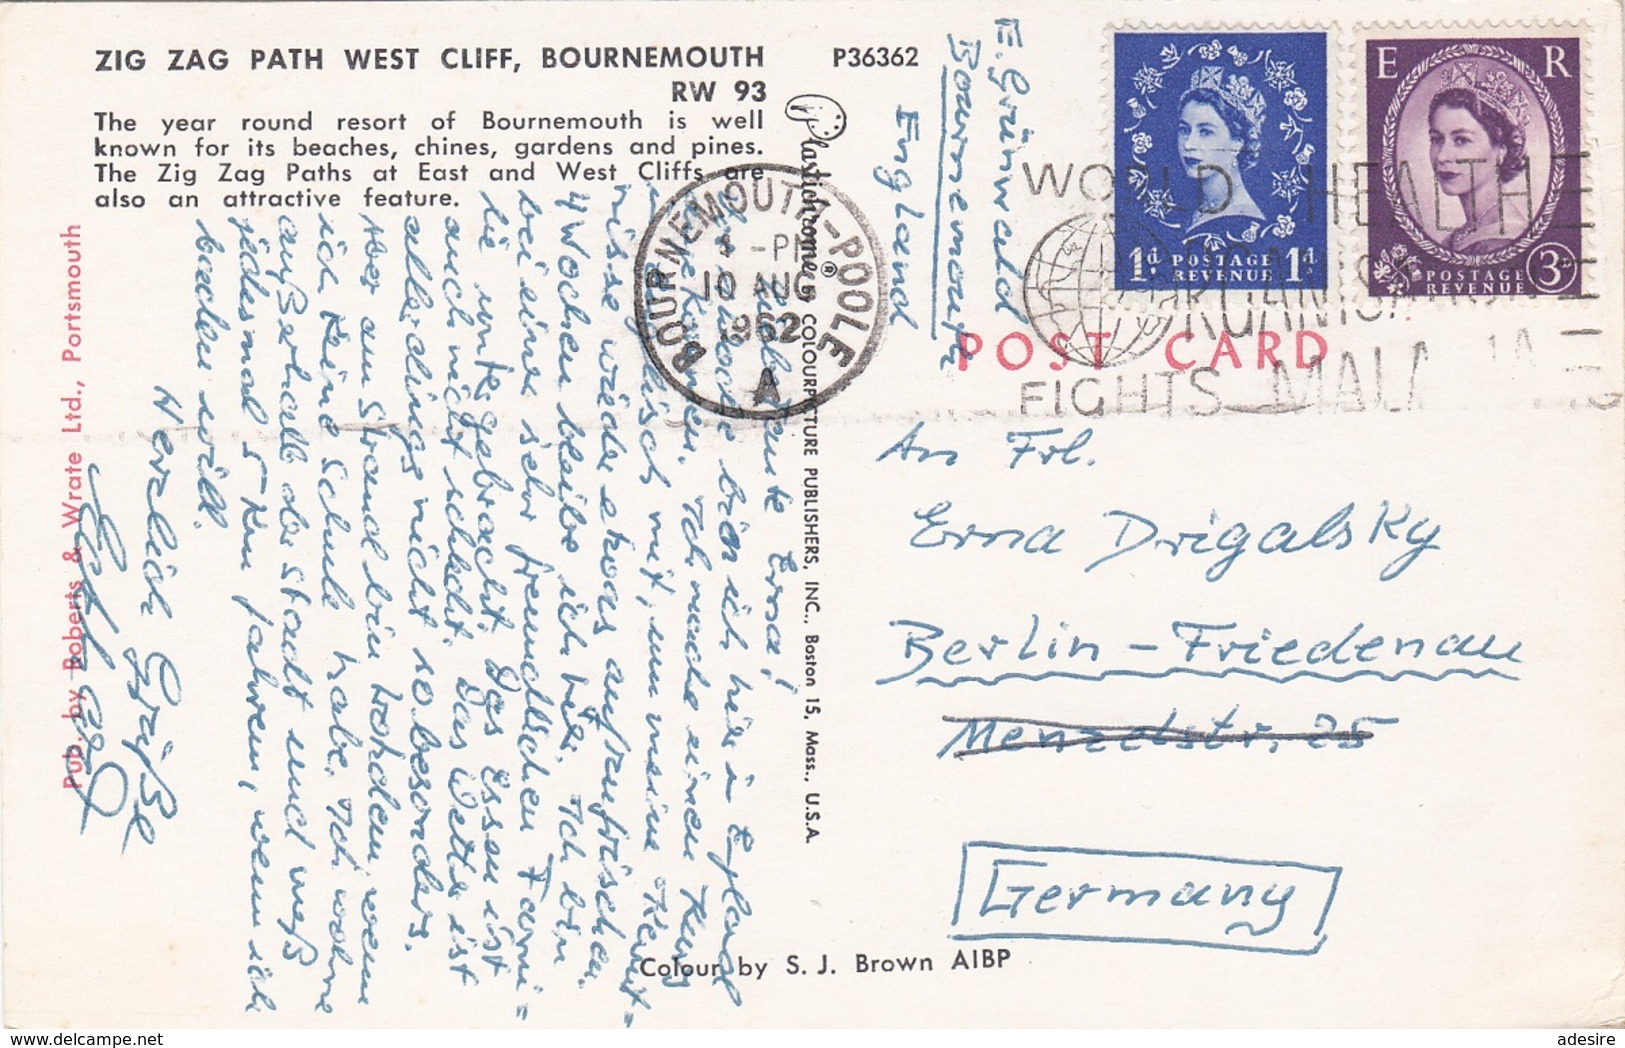 ZIG ZAG PATH WEST CLIFF, BOURNEMOUTH
RW 93
P36362
The year round resort of Bournemouth is well
known for its beaches, chines, gardens and pines.
The Zig Zag Paths at East and West Cliffs are
also an attractive feature.
Pub. by Roberts & Wrate Ltd., Portsmouth
Plastichrome® COLOURPICTURE PUBLISHERS, INC., Boston 15, Mass., U.S.A.
Colour by S. J. Brown AIBP
POST CARD
BOURNEMOUTH-POOLE
-PM
10 AUG
1962
A
WORLD HEALTH
ORGANISATION
FIGHTS MALARIA
1d POSTAGE REVENUE 1d
E R
POSTAGE REVENUE 3d
E. Grünwald
Bournemouth
England
An Frl.
Erna Drigalsky
Berlin-Friedenau
Menzelstr. 25
Germany
Erna!
bin ich hier in England
Ich mache einen Kurs
mit, um meine Kennt=
nisse wieder etwas aufzufrischen.
4 Wochen bleibe ich hier. Ich bin
bei einer sehr freundlichen Fami=
lie untergebracht. Das Essen ist
auch nicht schlecht. Das Wetter ist
allerdings nicht so besonders.
Aber am Strand bin baden, wenn
ich keine Schule habe. Ich wohne
außerhalb der Stadt und muß
jedesmal 5 km fahren, wenn ich
baden will.
Herzliche Grüße